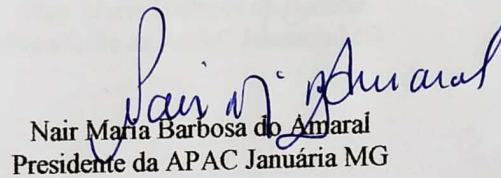 Nair Mª B Amaral
Nair Maria Barbosa do Amaral
Presidente da APAC Januária MG